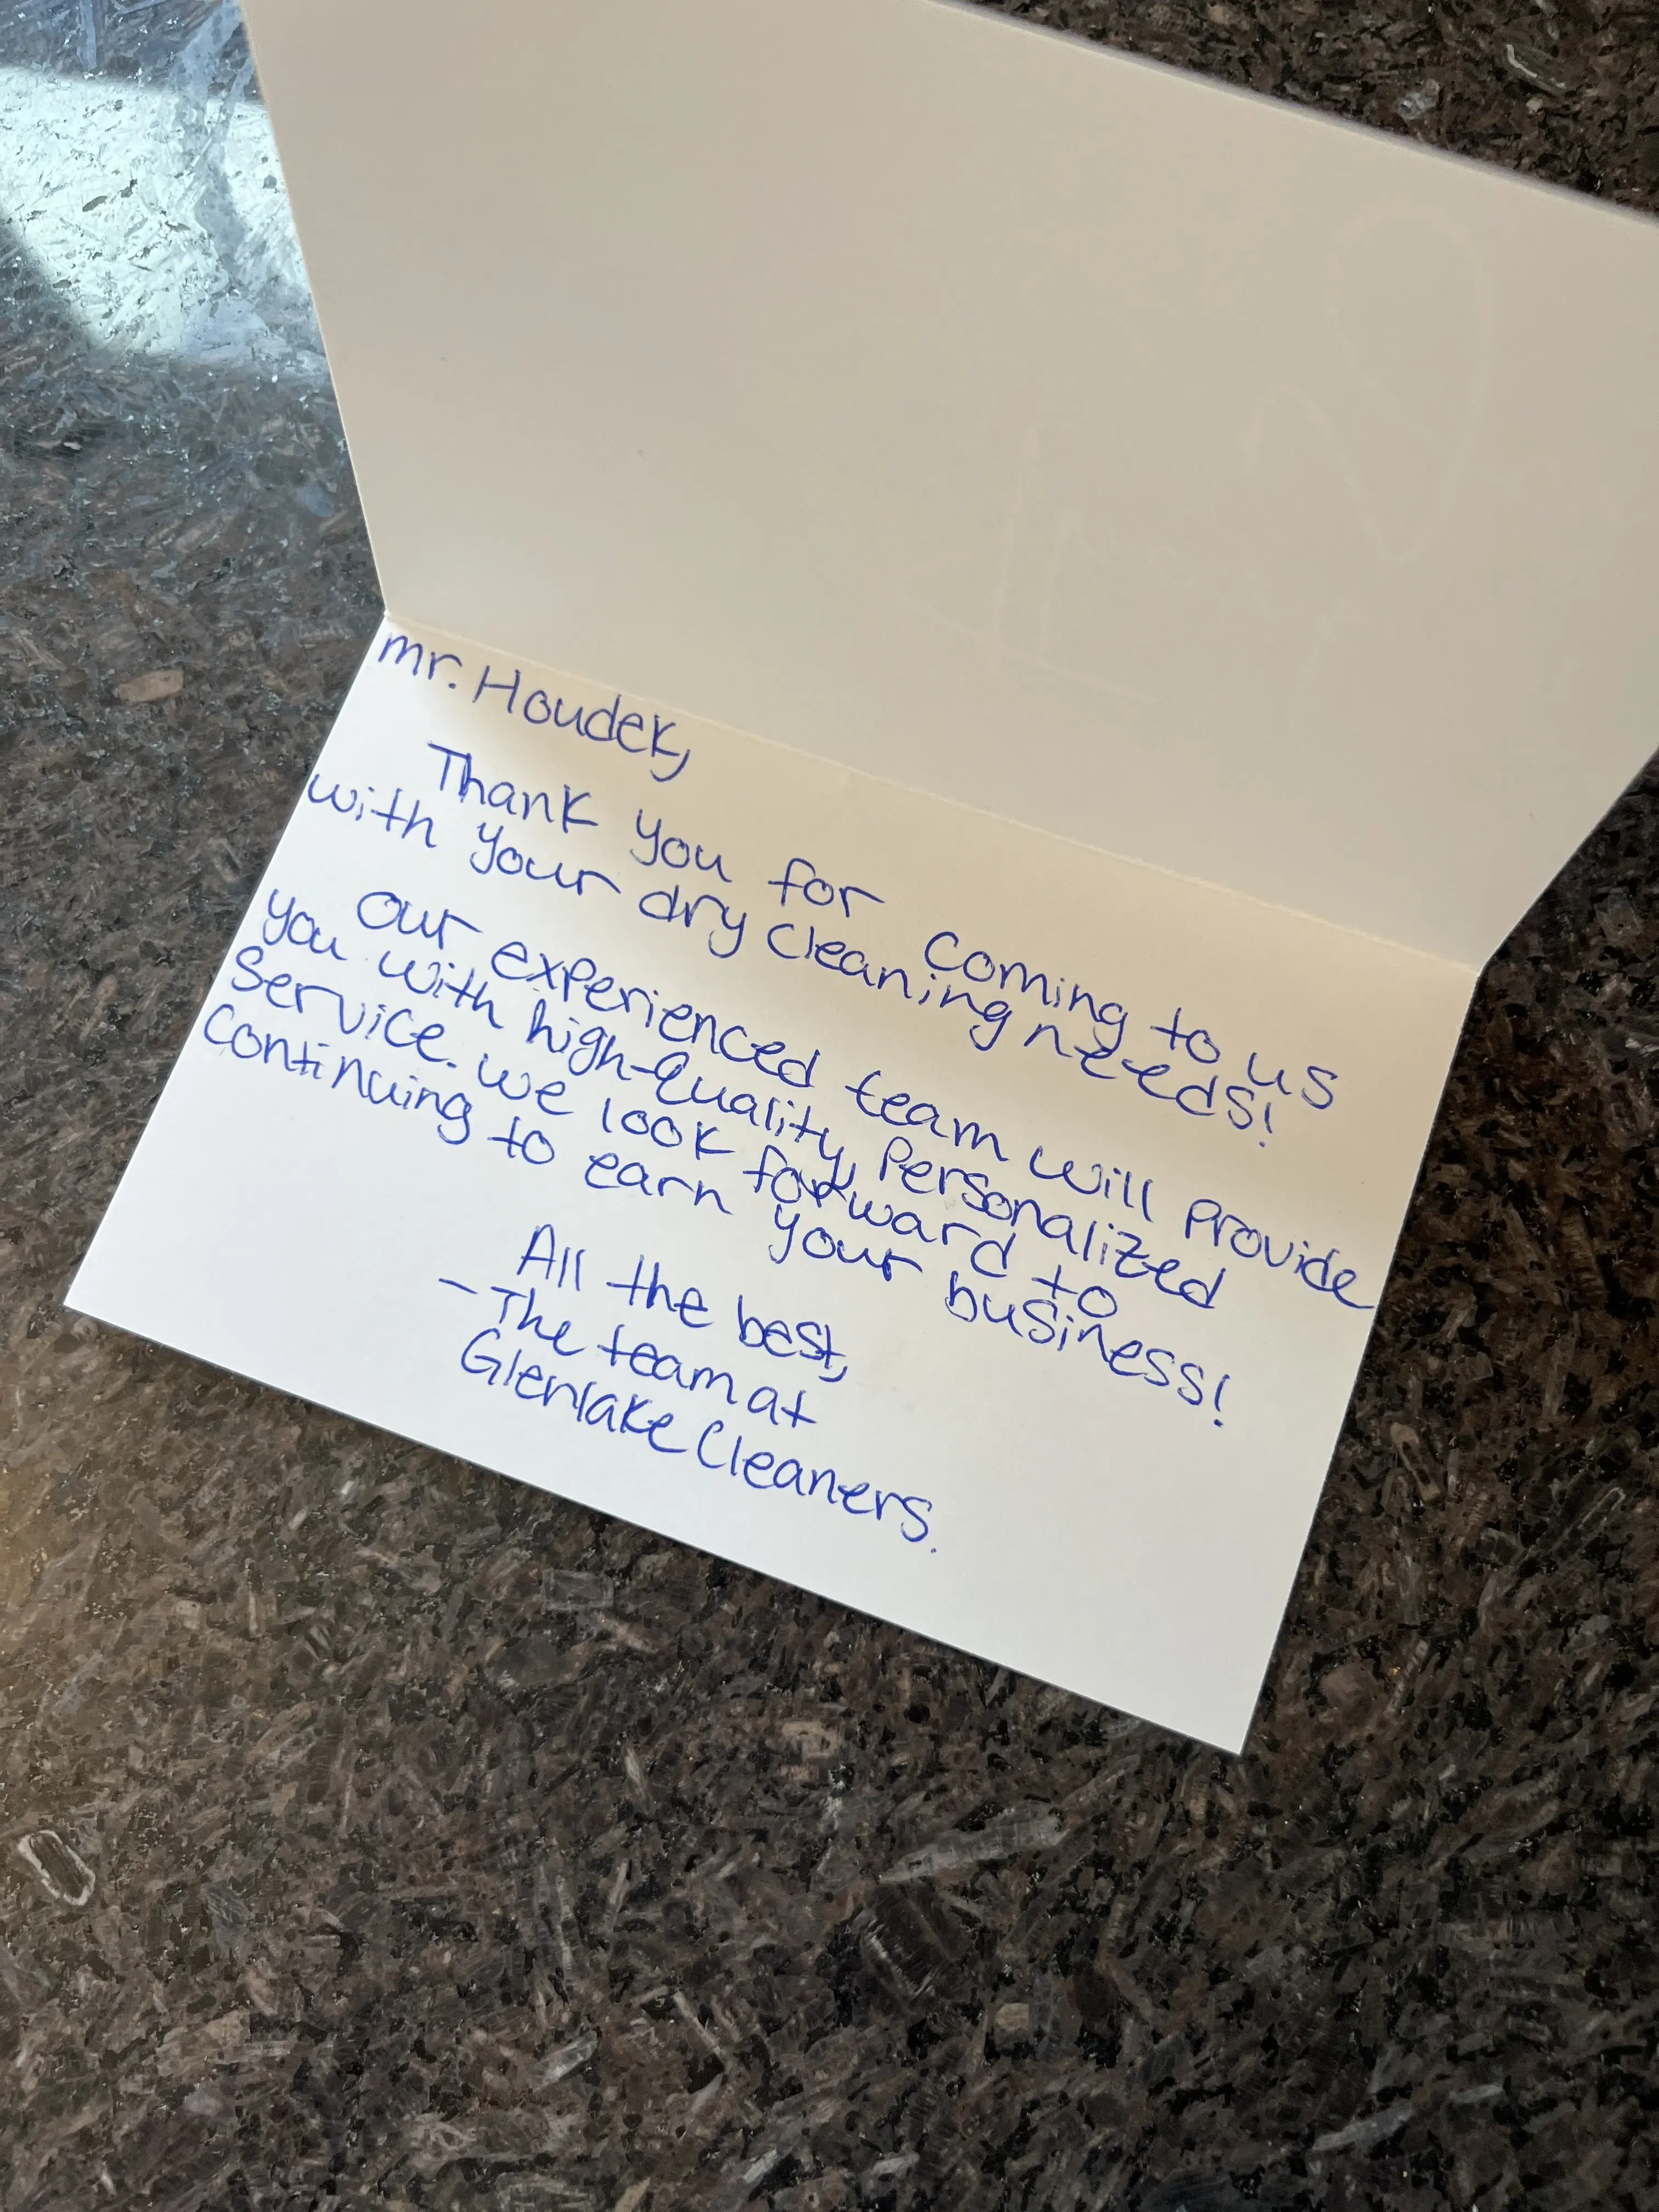 mr. Houdek,
Thank you for coming to us
with your dry cleaning needs!
Our experienced team will provide
you with high-quality, personalized
service. we look forward to
continuing to earn your business!
All the best,
- The team at
Glenlake Cleaners.